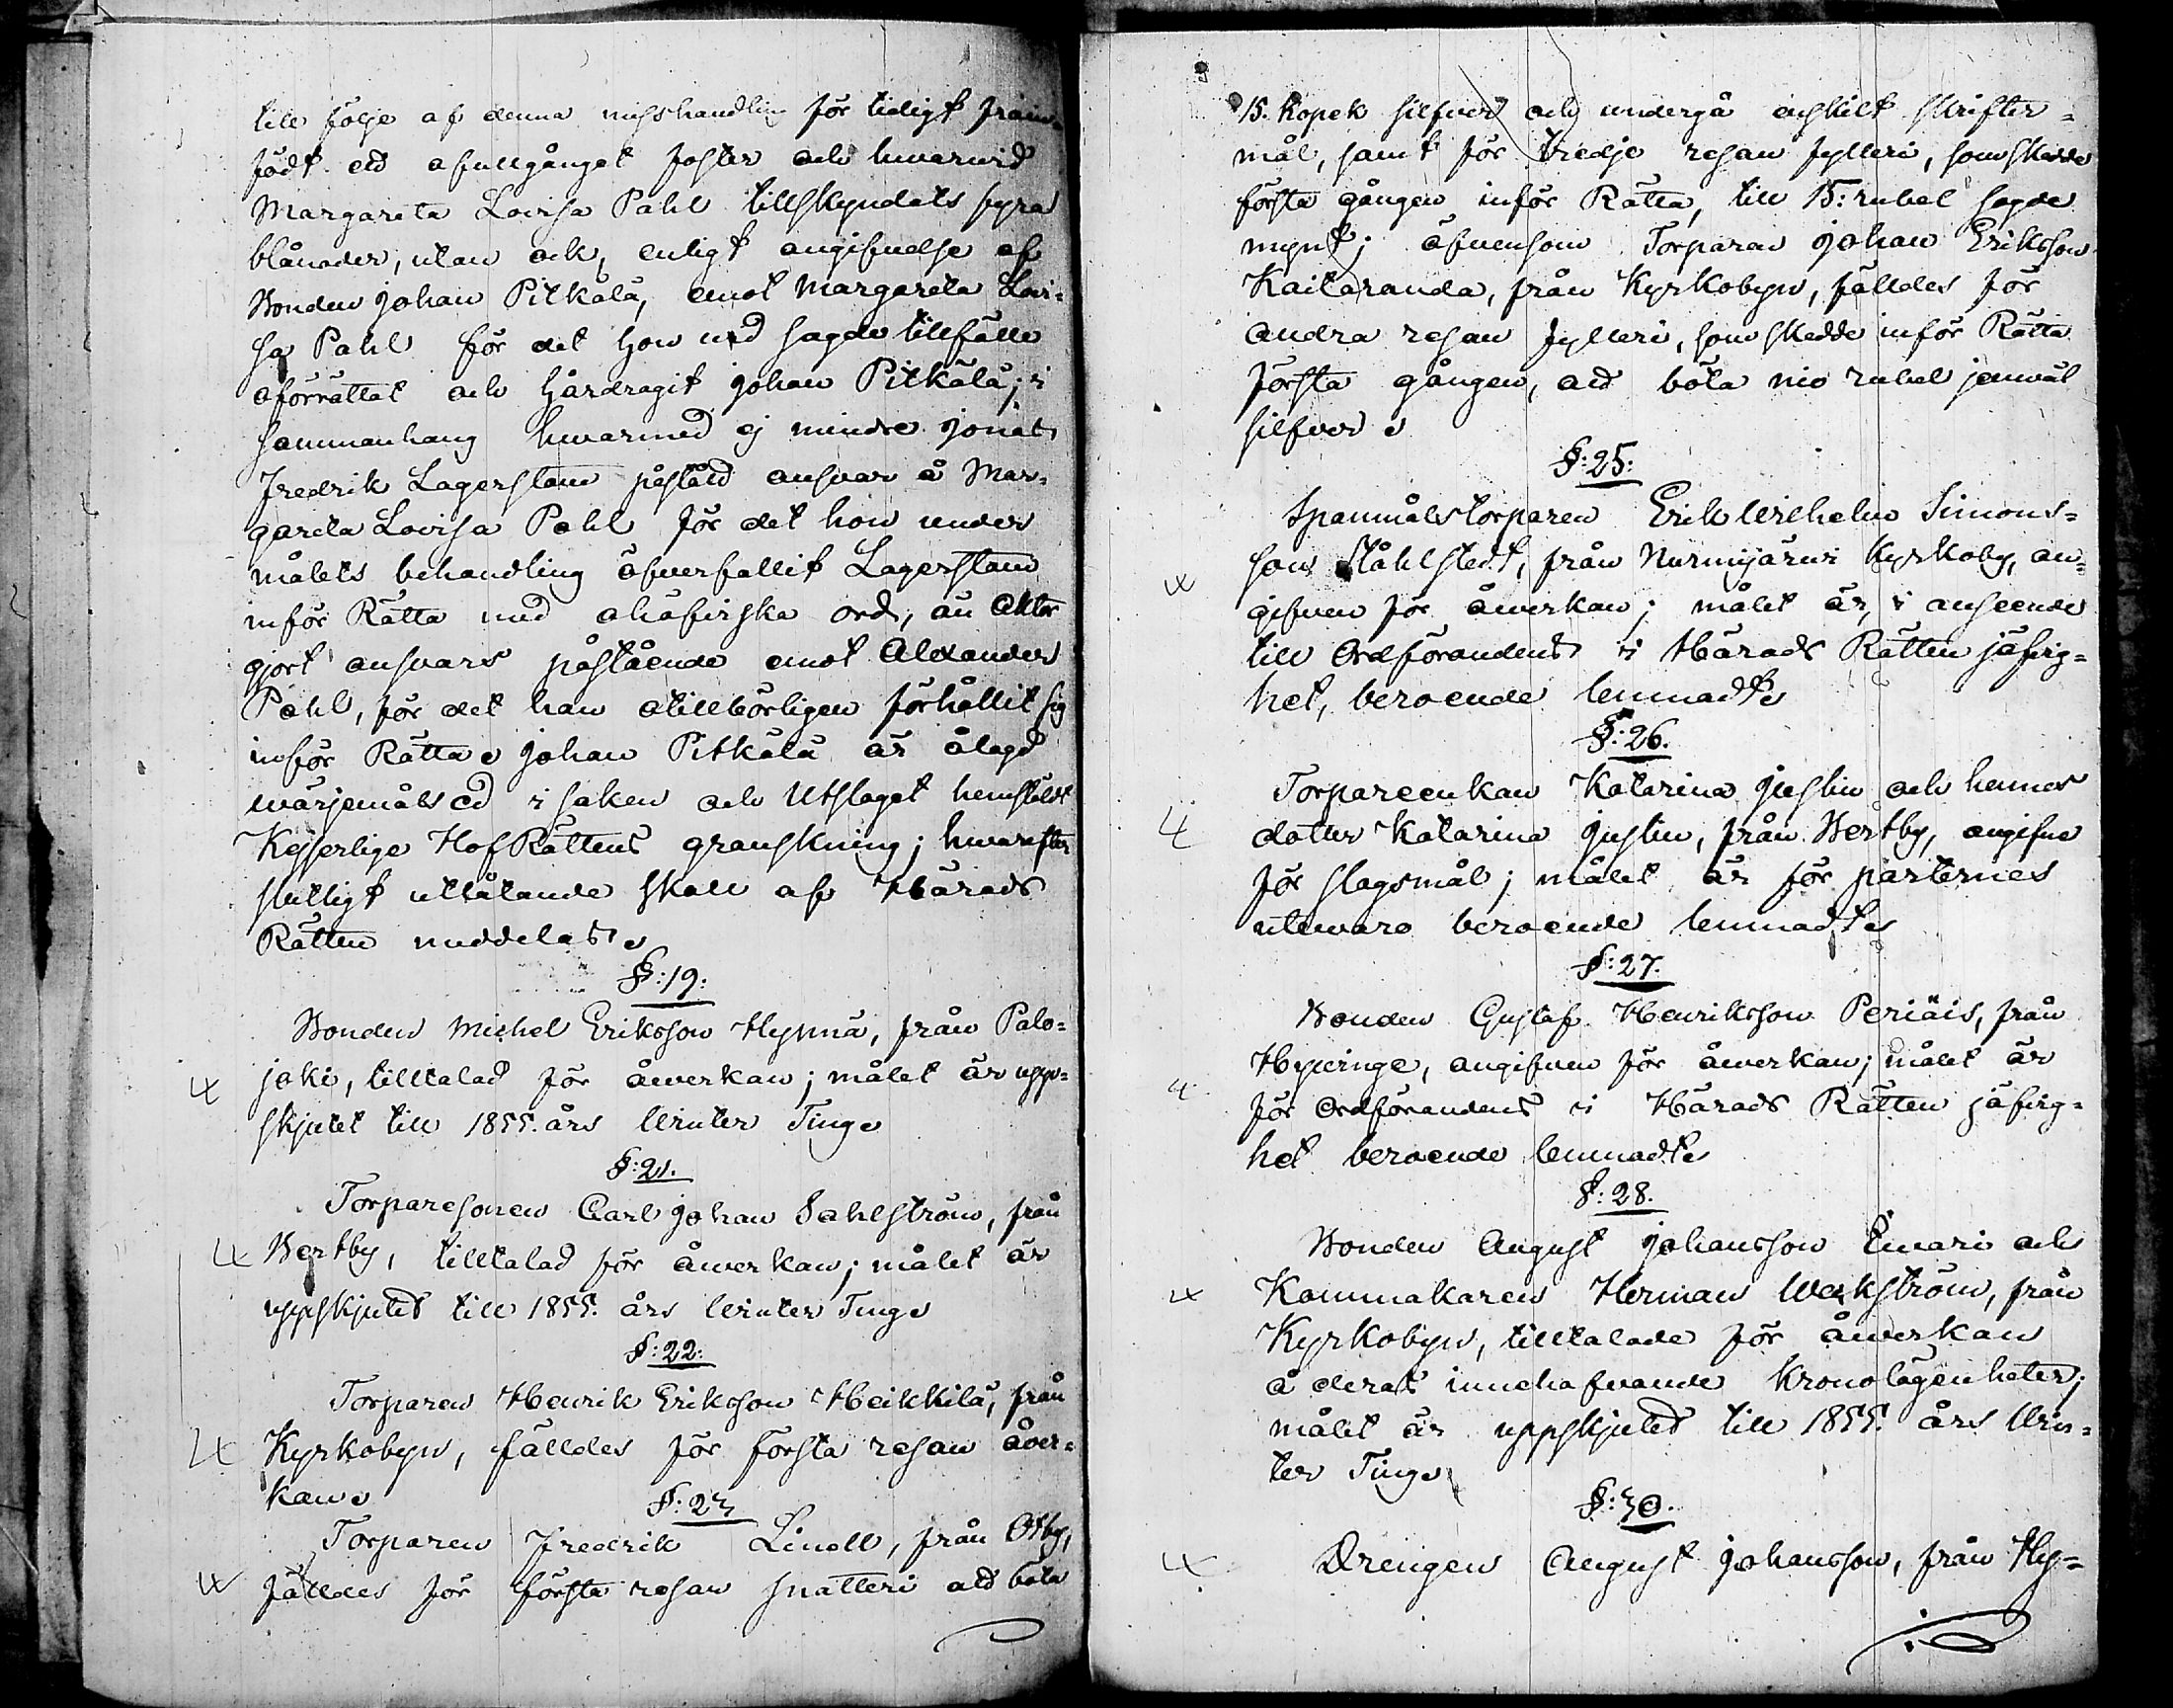 till följe af denna misshandling för tidigt fram-
födt ett ofullgånget foster och hwarvid
Margareta Lovisa Pahl tillskyndats fyra
blånader, utan ock, enligt angifvelse af
Bonden Johan Pitkälä, emot Margareta Lovi-
sa Pahl för det hon vid sagde tillfälle
oförrättat och hårdragit Johan Pitkälä; i
sammanhang hwarmed ej mindre Jonas
Fredrik Lagerstam påstått answar å Mar-
gareta Lovisa Pahl för det hon under
målets behandling öfverfallit Lagerstam
inför Rätta med ohöfviska ord, än Aktor
gjort answars påstående emot Alexander
Pahl, för det han otillbörligen förhållit sig
inför Rätta. Johan Pitkälä är ålagd
wärjemåls ed i saken och Utslaget hemstäldt
Kejserlige HofRättens granskning; hwarefter
slutligt utlåtande skall af Härads
Rätten meddelas.
§:19:
Bonden Michel Eriksson Hynnä, från Palo-
joki, tilltalad för åwerkan; målet är upp-
skjutet till 1855. års Winter Ting.
§:21.
Torparesonen Carl Johan Sahlström, från
Bertby, tilltalad för åwerkan; målet är
uppskjutet till 1855. års Winter Ting.
§:22:
Torparen Henrik Eriksson Heikkilä, från
Kyrkobyn, fälldes för första resan åver-
kan.
§:23
Torparen Fredrik Linell, från Otby,
fälldes för första resan snatteri att böta
15. kopek silfver och undergå enskilt skrifter-
mål, samt för tredje resan fylleri, som skedde
första gången inför Rätta, till 15: rubel sagde
mynt; äfvensom Torparen Johan Eriksson
Kaitaranda, från Kyrkobyn, fälldes för
andra resan fylleri, som skedde inför Rätta
första gången, att böta nio rubel jemväl
silfver.
§:25:
Spanmålstorparen Erik Wilhelm Simons-
son Ståhlstedt, från Nurmijärvi Kyrkoby, an-
gifven för åwerkan; målet är, i anseende
till Ordförandens i Härads Rätten jäfvig-
het, beroende lemnadt.
§:26.
Torpareenkan Katarina Juslin och hennes
dotter Katarina Juslin, från Bertby, angifne
för slagsmål; målet är för parternes
utewaro beroende lemnadt.
§:27.
Bonden Gustaf Henriksson Periäis, från
Hyvinge, angifven för åwerkan; målet är
för Ordförandens i Härads Rätten jäfvig-
het beroende lemnadt.
§:28.
Bonden August Johansson Emari och
Kammakaren Herman Weckström, från
Kyrkobyn, tilltalade för åwerkan
å deras innehafvande Kronolägenheter;
målet är uppskjutet till 1855. års Win-
ter Ting.
§:30.
Drengen August Johansson, från Hy-